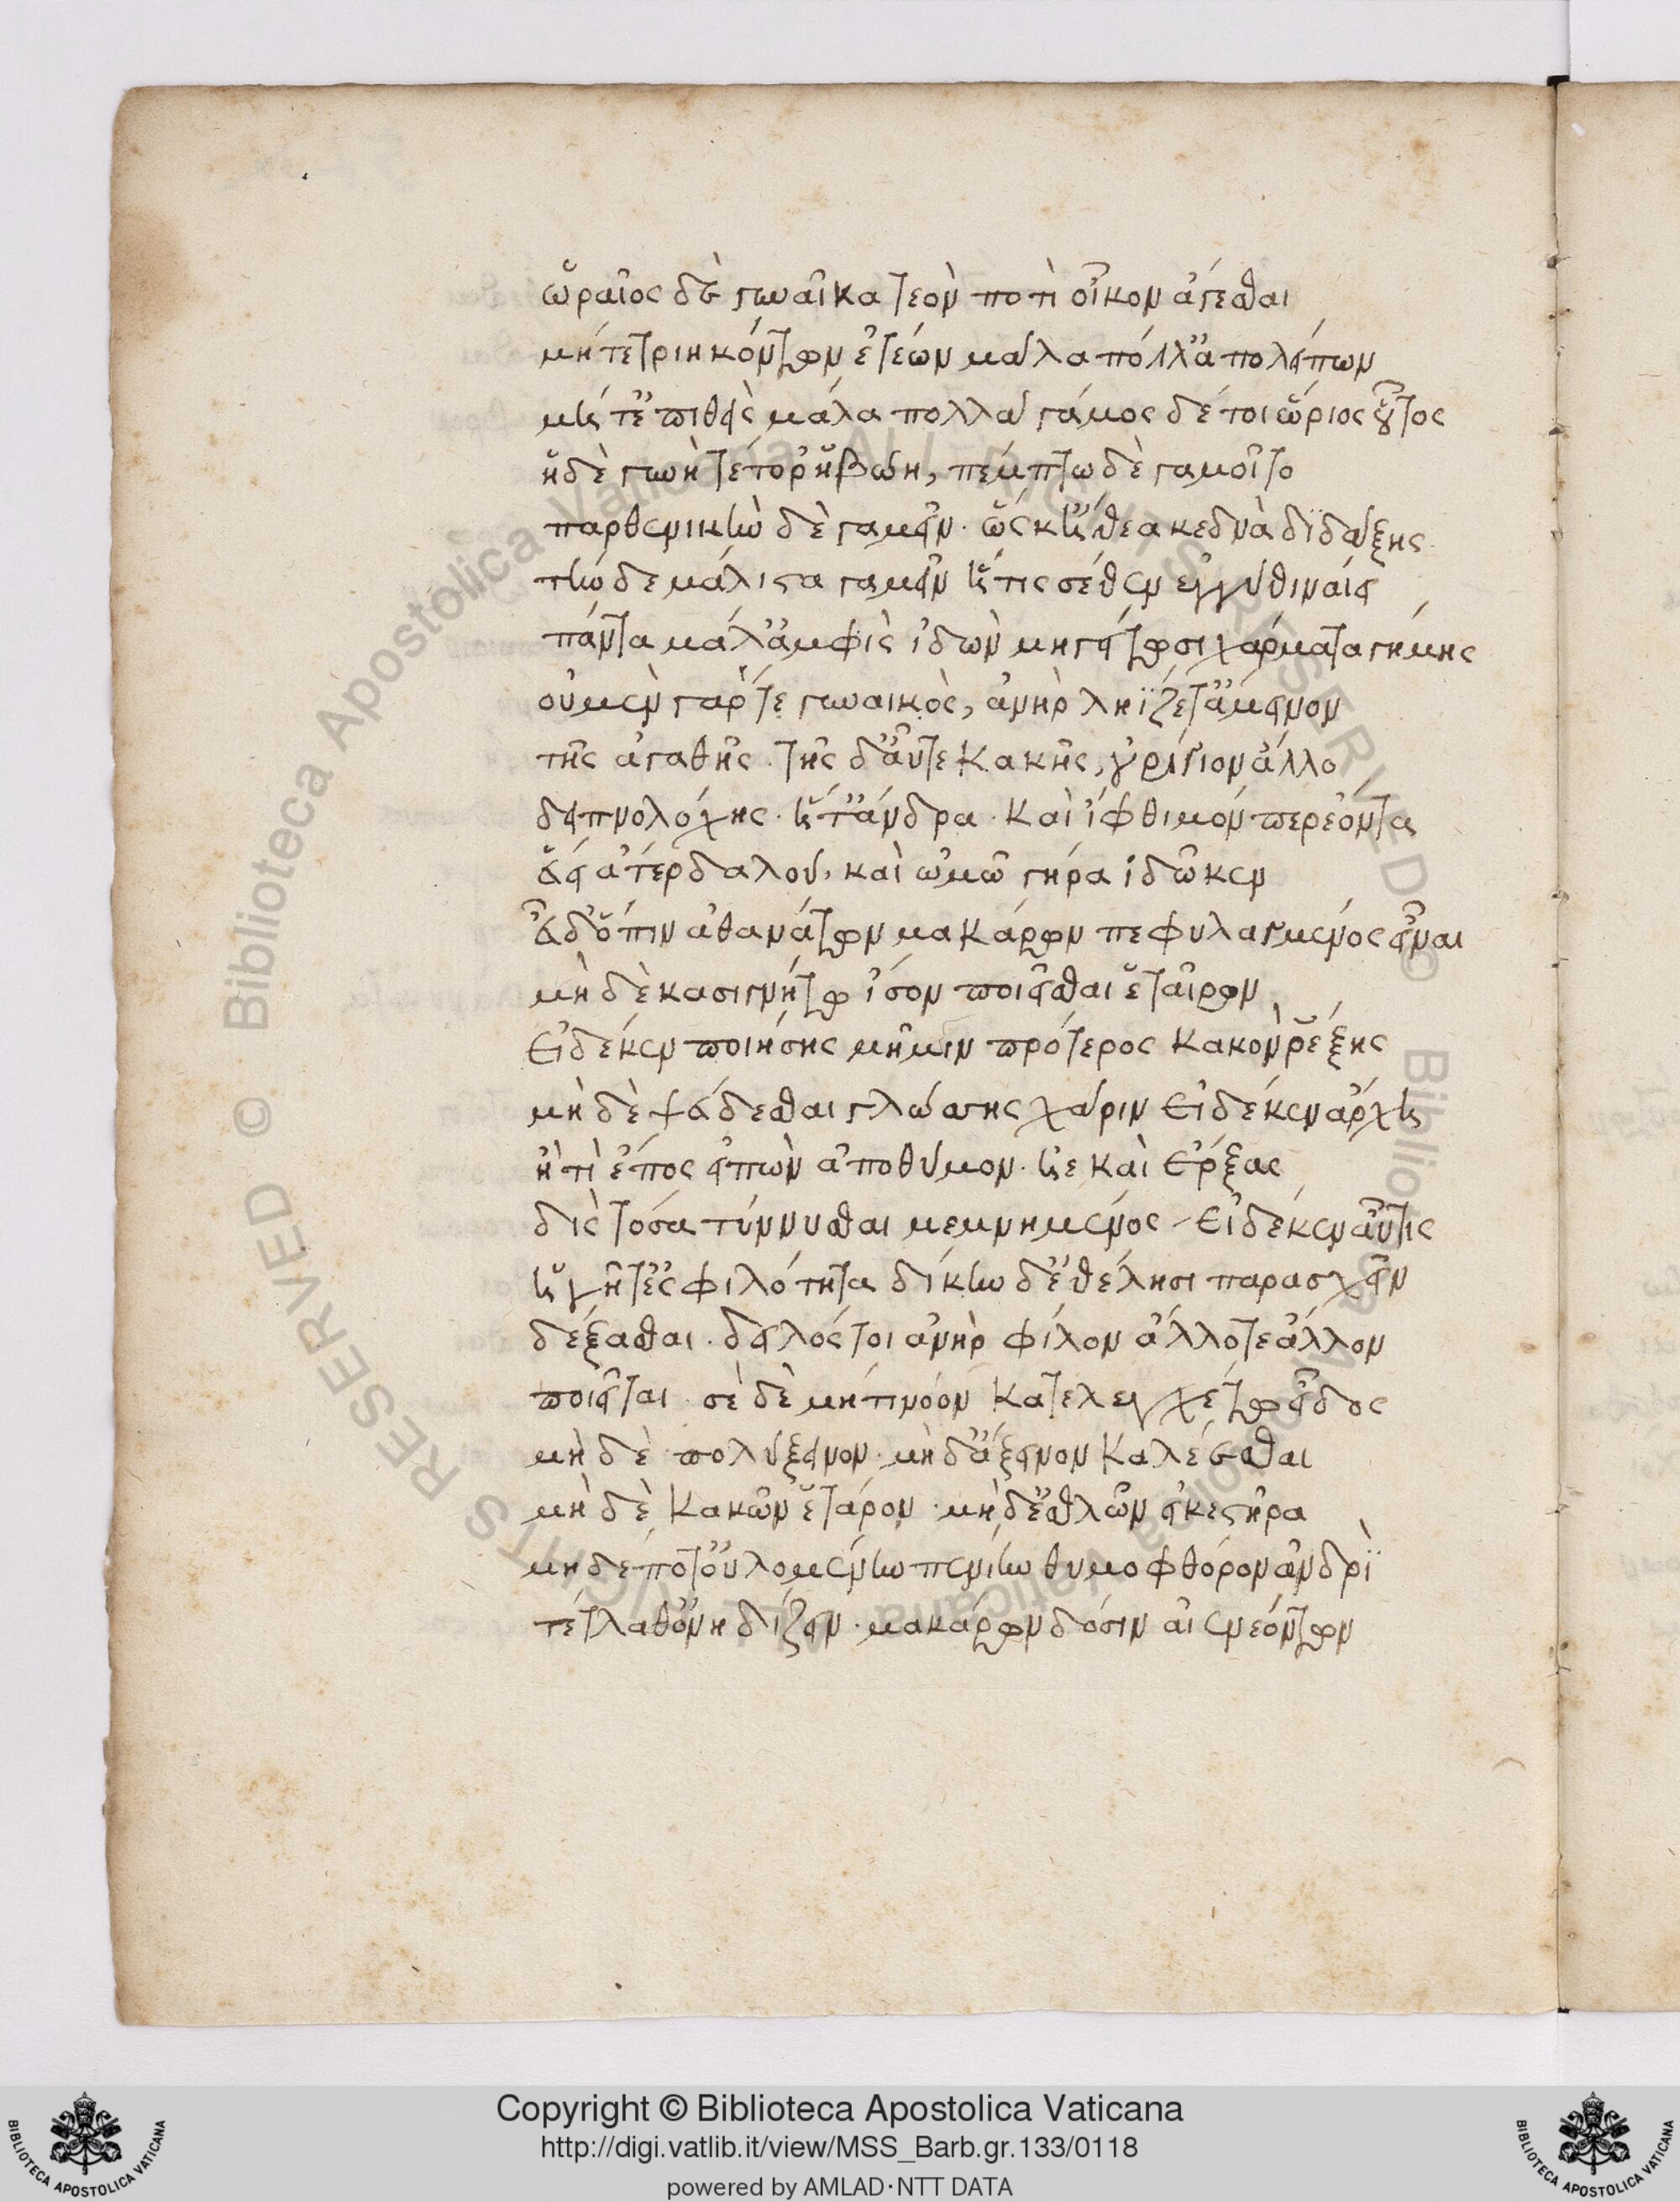 ὡραῖος δὲ γυναῖκα τεὸν ποτὶ οἶκον ἄγεσθαι
μήτε τριηκόντων ἐτέων μάλα πόλλ' ἀπολείπων
μήτ' ἐπιθεὶς μάλα πολλά γάμος δέ τοι ὥριος οὗτος
ἡ δὲ γυνὴ τέτορ' ἡβώη, πέμπτω δὲ γαμοῖτο
παρθενικὴν δὲ γαμεῖν· ὥς κ' ἤθεα κεδνὰ διδάξης
τὴν δὲ μάλιστα γαμεῖν ἥτις σέθεν ἐγγύθι ναίει
πάντα μάλ' ἀμφὶς ἰδὼν μὴ γείτοσι χάρματα γήμης
οὐ μὲν γάρ τε γυναικὸς, ἀνὴρ ληΐζετ' ἄμεινον
τῆς ἀγαθῆς· τῆς δ' αὖτε κακῆς, οὐ ῥίγιον ἄλλο
δειπνολόχης· ἥτ' ἄνδρα· καὶ ἴφθιμόν περ ἐόντα
εὕει ἄτερ δαλοῦ, καὶ ὠμῶ γήραϊ δῶκεν
εὖ δ' ὄπιν ἀθανάτων μακάρων πεφυλαγμένος εἶναι
μὴ δὲ κασιγνήτω ἴσον ποιεῖσθαι ἑταῖρον
Εἰ δέ κεν ποιήσης μή μιν πρότερος κακὸν ῥέξης
μὴ δὲ ψεύδεσθαι γλώσσης χάριν Εἰ δέ κεν ἄρχη
ἤ τι ἔπος εἰπὼν ἀποθύμον· ἠὲ καὶ ἔρξας
δὶς τόσα τίννυσθαι μεμνημένος - Εἰ δέ κεν αὖτις
ἡγῆτ' ἐς φιλότητα δίκην δ' ἐθέλησι παρασχεῖν
δέξασθαι· δειλός τοι ἀνὴρ φίλον ἄλλοτε ἄλλον
ποιεῖται· σὲ δὲ μή τι νόον κατελεγχέτω εἶδος
μὴ δὲ πολύξεινον· μὴ δ' ἄξεινον καλέεσθαι
μὴ δὲ κακῶν ἕταρον· μὴ δ' ἐσθλῶν νεικεστῆρα
μὴ δέ ποτ' οὐλομένην πενίην θυμοφθόρον ἀνδρὶ
τέτλαθ' ὀνηδίζειν· μακάρων δόσιν αἰὲν ἐόντων
Copyright © Biblioteca Apostolica Vaticana
http://digi.vatlib.it/view/MSS_Barb.gr.133/0118
powered by AMLAD·NTT DATA